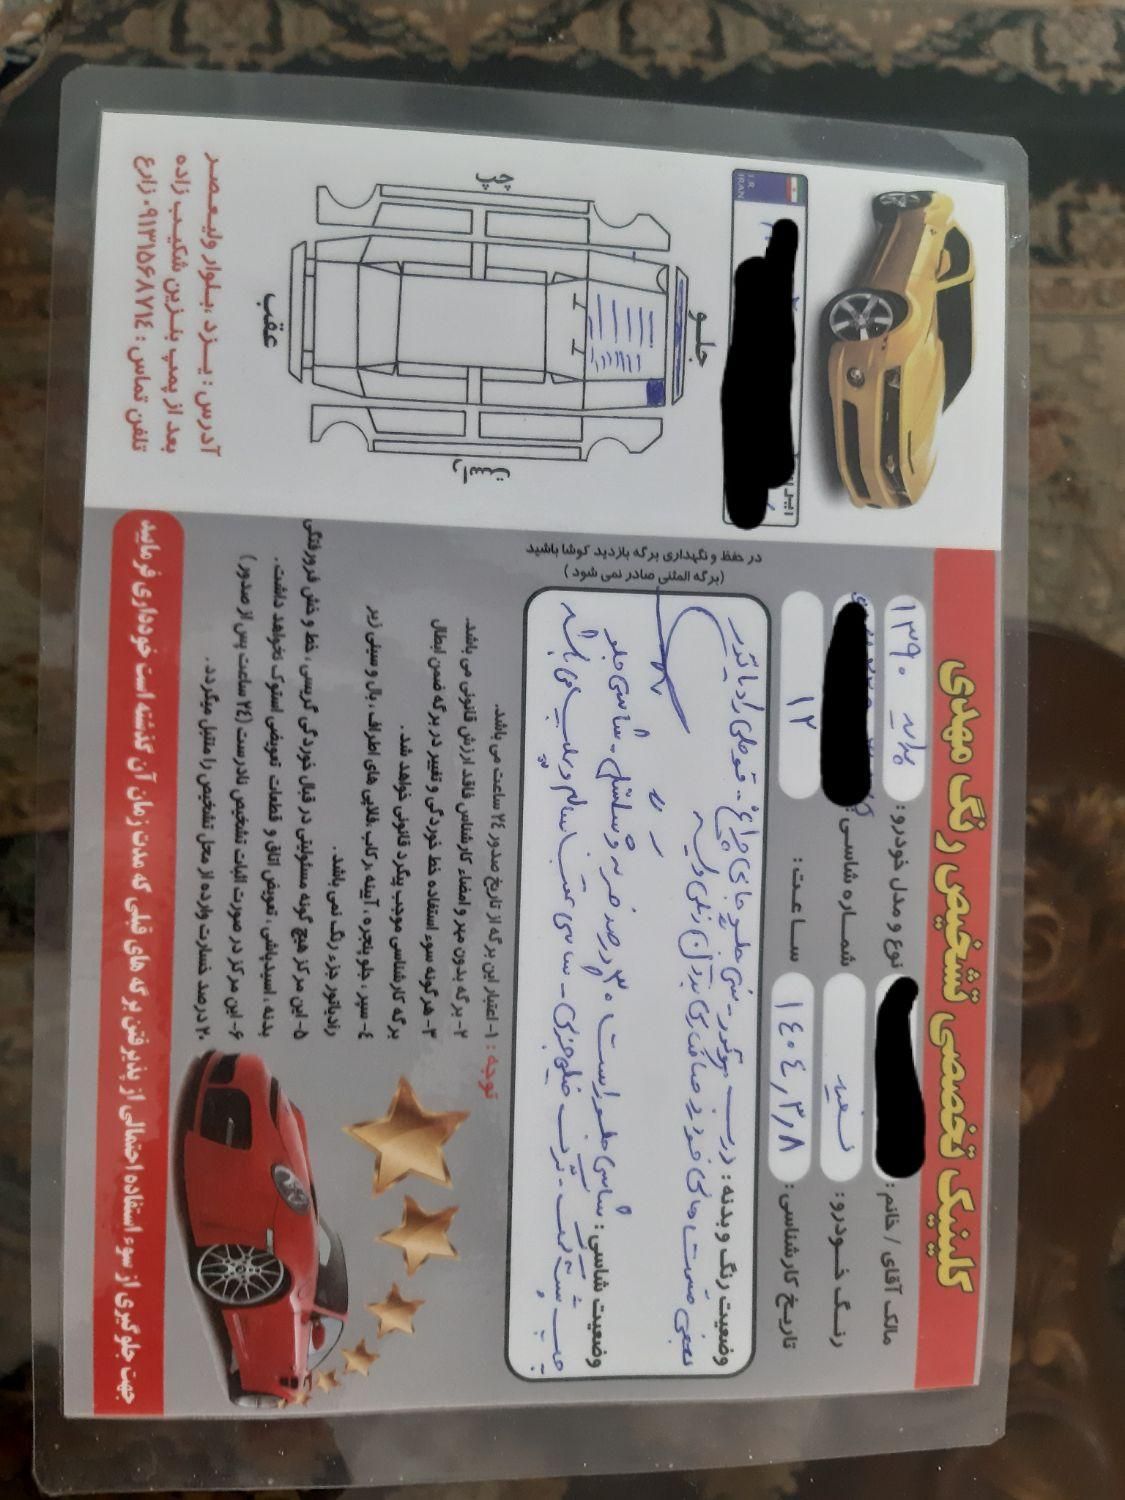 کلینیک تخصصی تشخیص رنگ مهدی
مالک آقای / خانم :
نوع و مدل خودرو : پراید ۱۳۹۰
رنگ خودرو : سفید
شماره شاسی :
تاریخ کارشناسی : ۱۴۰۴٫۳٫۸
ساعت : ۱۲
وضعیت رنگ و بدنه : درب موتور - سینی جلو جای چراغ - قوطی رادیاتور
بعضی قسمت های خودرو صافکاری بدون رنگ
وضعیت شاسی : شاسی جلو راست ۳۰ درصد ضربه - شاسی جلو
چپ - شاسی عقب سالم و پلمپ می باشد
در حفظ و نگهداری برگه بازدید کوشا باشید
(برگه المثنی صادر نمی شود )
توجه : ۱- اعتبار این برگه از تاریخ صدور ۲۴ ساعت می باشد.
۲- برگه بدون مهر و امضاء کارشناس فاقد ارزش قانونی می باشد.
۳- هرگونه سوء استفاده خط خوردگی و تغییر در برگه ضمن ابطال
برگه کارشناسی موجب پیگرد قانونی خواهد شد.
۴- سپر ، جلو پنجره ، آیینه ،رکاب ،قلابی های اطراف ، بال و سینی زیر
رادیاتور جزء رنگ نمی باشد.
۵- این مرکز هیچ گونه مسئولیتی در قبال خوردگی گریسی ، خط و خش فرورفتگی
بدنه ، اسیدپاشی ، تعویض اتاق و قطعات تعویضی استوک نخواهد داشت.
۶- این مرکز در صورت اثبات تشخیص نادرست (۲۴ ساعت پس از صدور)
۲۰ درصد خسارت وارده از محل تشخیص را متقبل میگردد.
جهت جلوگیری از سوء استفاده احتمالی از پذیرفتن برگه های قبلی که مدت زمان آن گذشته است خودداری فرمائید
I.R.
IRAN
جلو
چپ
راست
عقب
آدرس : یـزد ،بـلوار ولیـعصـر
بعد از پمپ بنـزین شکیـب زاده
تلفن تماس : ۰۹۱۳۱۵۶۸۷۱۴ زارع